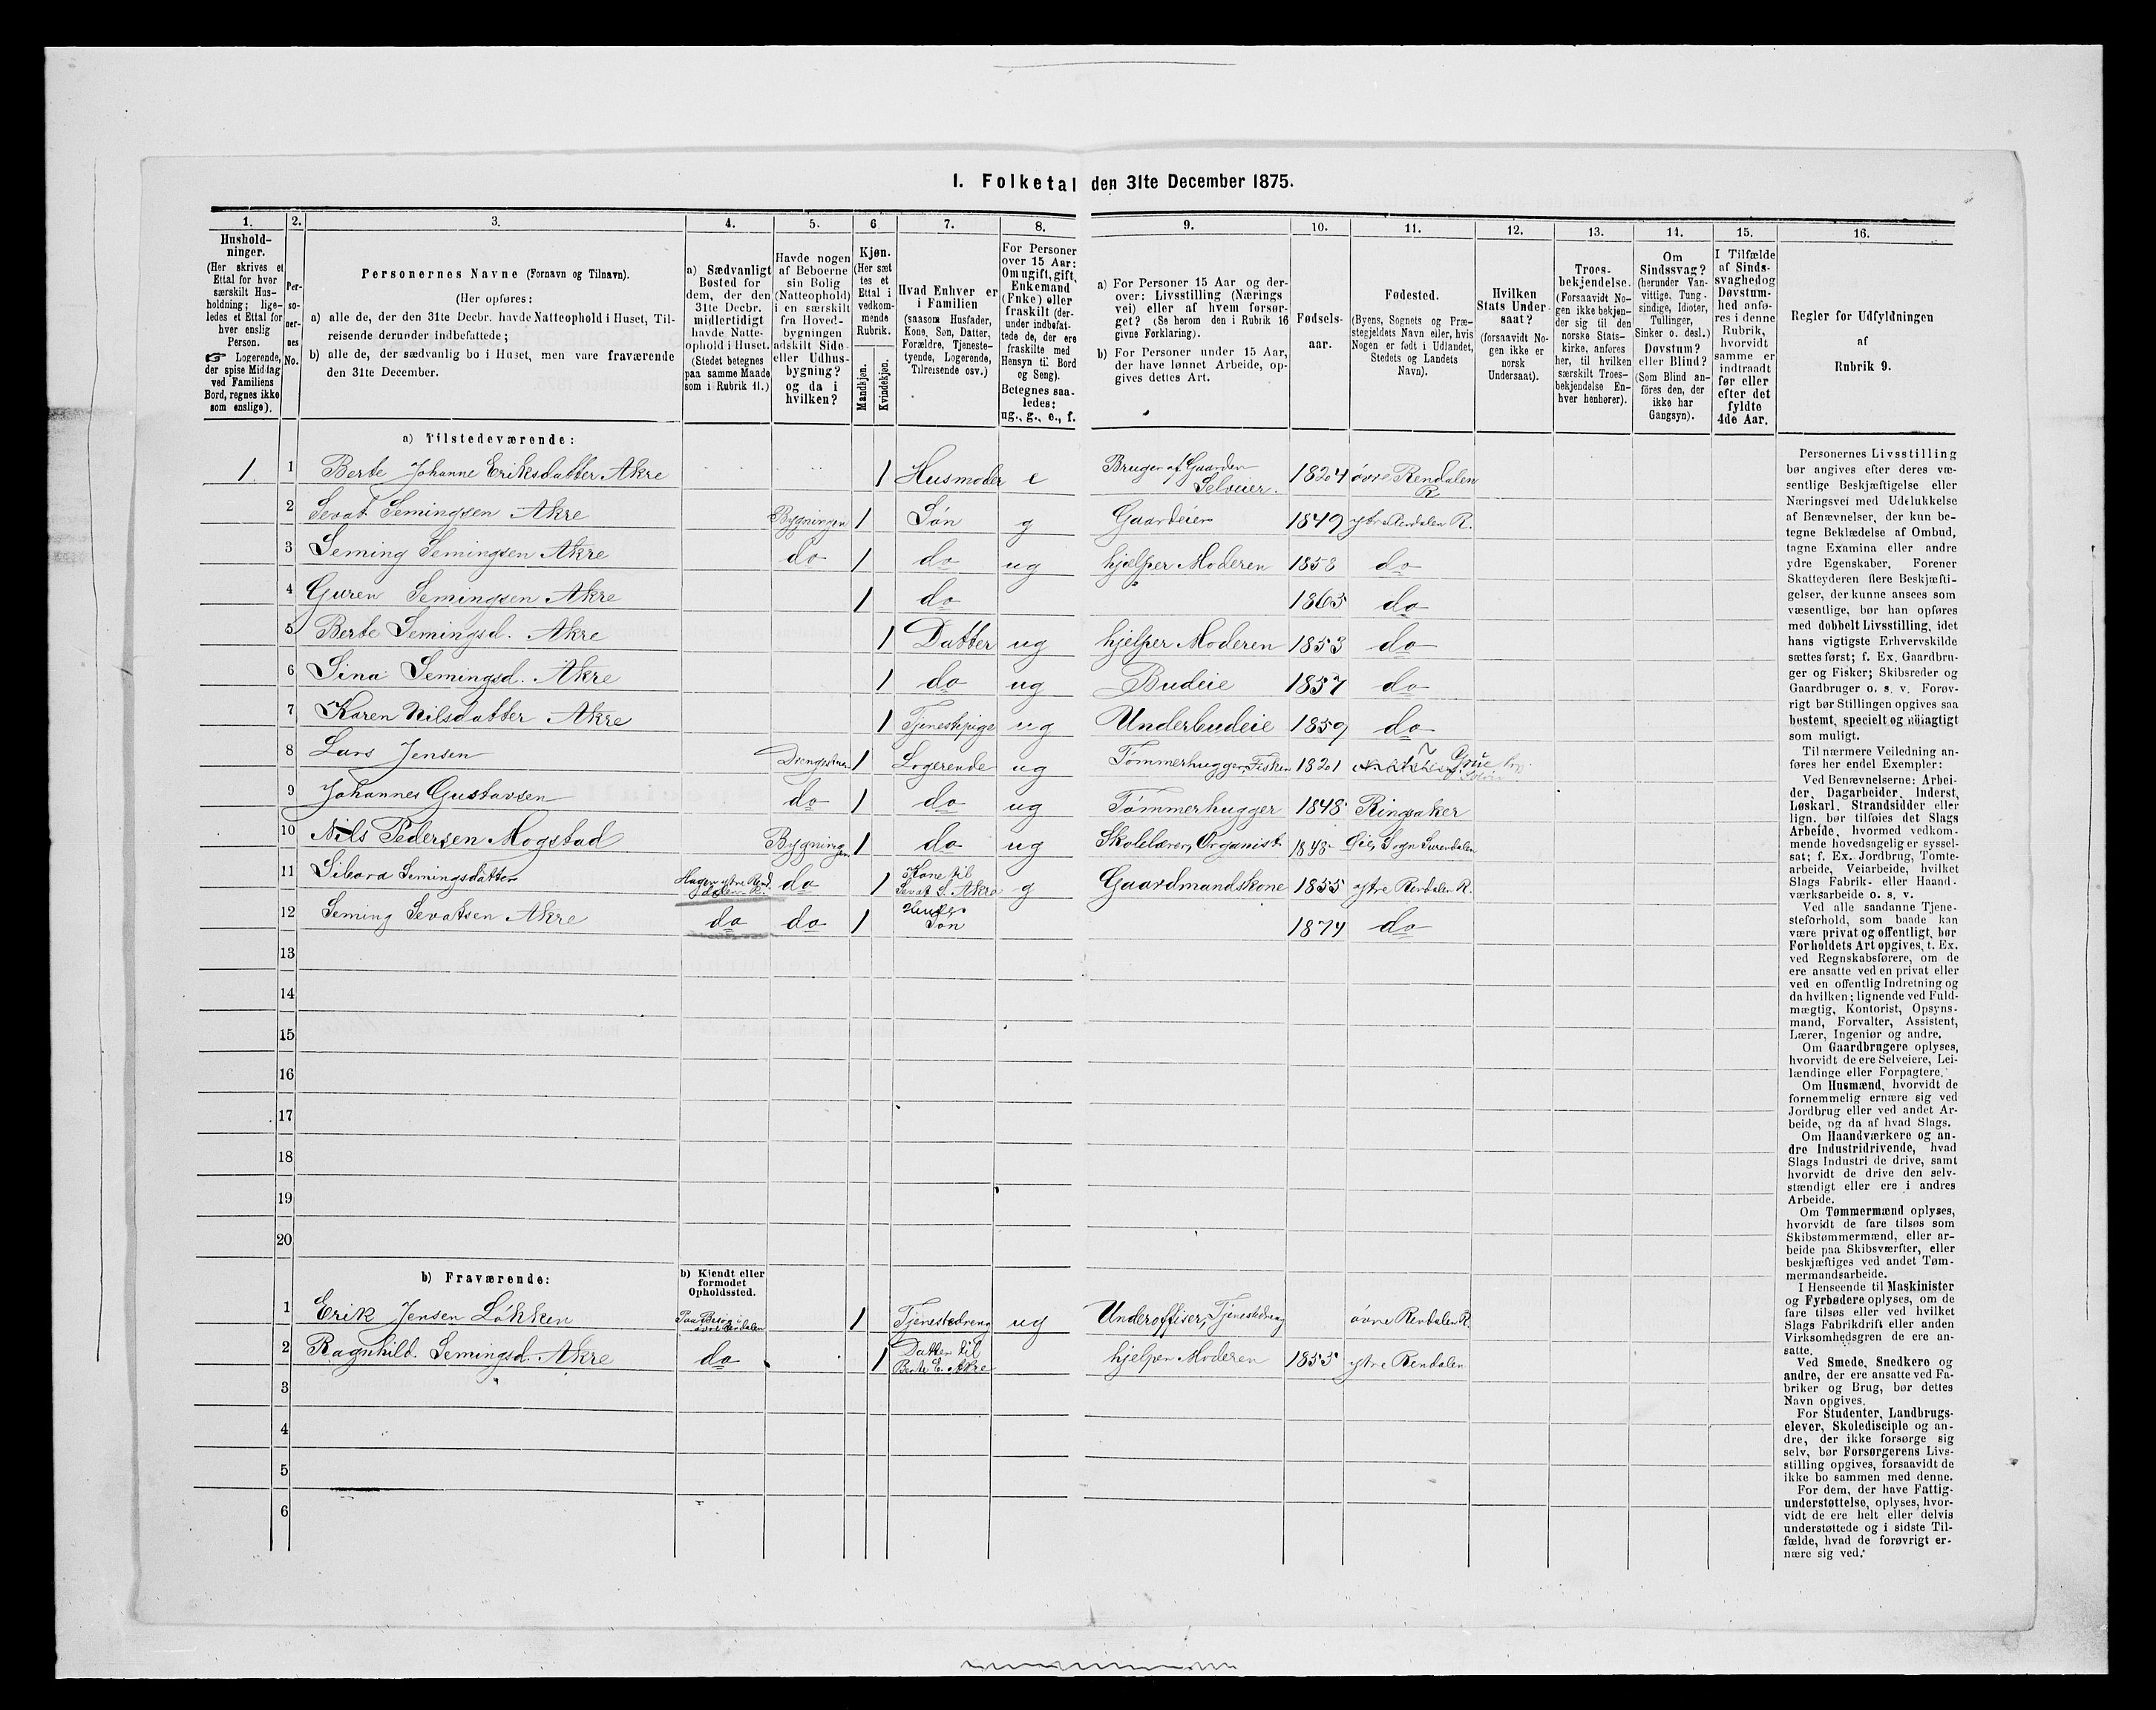 I. Folketal den 31te December 1875.
1. 2. 3. 4. 5. 6 7. 8. 9. 10. 11. 12. 13. 14. 15. 16.
Hushold-
ninger.
(Her skrives et
Ettal for hver
særskilt Hus-
holdning; lige-
ledes et Ettal for
hver enslig
Person.
☞ Logerende,
der spise Middag
ved Familiens
Bord, regnes ikke
som enslige).
Per-
so-
ner-
nes
No.
Personernes Navne (Fornavn og Tilnavn).
(Her opføres:
a) alle de, der den 31te Decbr. havde Natteophold i Huset, Til-
reisende derunder indbefattede;
b) alle de, der sædvanlig bo i Huset, men vare fraværende
den 31te December.
a) Sædvanligt
Bosted for
dem, der den
31te Decbr.
midlertidigt
havde Natte-
ophold i Huset.
(Stedet betegnes
paa samme Maade
som i Rubrik 11.)
Havde nogen
af Beboerne
sin Bolig
(Natteophold)
i en særskilt
fra Hoved-
bygningen
adskilt Side-
eller Udhus-
bygning?
og da i
hvilken?
Kjøn.
(Her sæt
tes et
Ettal i
vedkom-
mende
Rubrik.
Mandkjøn.
Kvindekjøn.
Hvad Enhver er
i Familien
(saasom Husfader,
Kone, Søn, Datter,
Forældre, Tjeneste-
tyende, Logerende,
Tilreisende osv.)
For Personer
over 15 Aar:
Om ugift, gift,
Enkemand
(Enke) eller
fraskilt (der-
under indbefat-
tede de, der ere
fraskilte med
Hensyn til Bord
og Seng).
Betegnes saa-
ledes:
ug., g., e., f.
a) For Personer 15 Aar og der-
over: Livsstilling (Nærings
vei) eller af hvem forsør-
get? (Se herom den i Rubrik 16
givne Forklaring).
b) For Personer under 15 Aar,
der have lønnet Arbeide, op-
gives dettes Art.
Fødsels-
aar.
Fødested.
(Byens, Sognets og Præ-
stegjeldets Navn eller, hvis
Nogen er født i Udlandet,
Stedets og Landets
Navn).
Hvilken
Stats Under-
saat?
(forsaavidt No-
gen ikke er
norsk
Undersaat).
Troes-
bekjendelse.
(Forsaavidt No-
gen ikke bekjen-
der sig til den
norske Stats-
kirke, anføres
her, til hvilken
særskilt Troes-
bekjendelse En-
hver henhører).
Om
Sindssvag?
(herunder Van-
vittige, Tung-
sindige, Idioter,
Tullinger,
Sinker o. desl.)
Døvstum?
eller Blind?
(Som Blind an-
føres den, der
ikke har
Gangsyn).
I Tilfælde
af Sinds-
svaghed og
Døvstum-
hed anfø-
res i denne
Rubrik,
hvorvidt
samme er
indtraadt
før eller
efter det
fyldte
4de Aar.
Regler for Udfyldningen
af
Rubrik 9.
a) Tilstedeværende:
1 1 Berte Johanne Eriksdatter Akre 1 Husmoder e Bruger af Gaarden Selveier. 1824 øvre Rendalen R
2 Sevat Semingsen Akre Bygningen 1 Søn g Gaardeier 1849 ytre Rendalen R.
3 Seming Semingsen Akre do 1 do ug hjelper Moderen 1858 do
4 Guren Semingsen Akre 1 do 1865 do
5 Berte Semingsd. Akre 1 Datter ug hjelper Moderen 1853 do
6 Sina Semingsd. Akre 1 do ug Budeie 1857 do
7 Karen Nilsdatter Akre 1 Tjenestepige ug Underbudeie 1859 do
8 Lars Jensen 1 Logerende ug Tømmerhugger, Fisker 1821 Grue
9 Johannes Gustavsen do 1 do ug Tømmerhugger 1848 Ringsaker
10 Nils Pedersen Mogstad Bygningen 1 do ug Skolelærer, Organist 1848 Øie Sogn Surendalen
11 Sibora Semingsdatter Hagen ytre Rendalen R. do 1 Kone til Sevat S. Akre g Gaardmandskone 1855 ytre Rendalen R.
12 Seming Sevatsen Akre do do 1 Søn 1874 do
13
14
15
16
17
18
19
20
b) Fraværende:
b) Kjendt eller
formodet
Opholdssted.
1 Erik Jensen Løkken Paa Besøg i øvre Rendalen 1 Tjenestedreng ug Underofficer, Tjenestedreng øvre Rendalen R
2 Ragnhild Semingsd. Akre do 1 Datter til Berte E. Akre hjelper Moderen 1855 ytre Rendalen
3
4
5
6
Personernes Livsstilling
bør angives efter deres væ-
sentlige Beskjæftigelse eller
Næringsvei med Udelukkelse
af Benævnelser, der kun be-
tegne Beklædelse af Ombud,
tagne Examina eller andre
ydre Egenskaber. Forener
Skatteyderen flere Beskjæfti-
gelser, der kunne ansees som
væsentlige, bør han opføres
med dobbelt Livsstilling, idet
hans vigtigste Erhvervskilde
sættes først; f. Ex. Gaardbru-
ger og Fisker; Skibsreder og
Gaardbruger o. s. v. Forøv-
rigt bør Stillingen opgives saa
bestemt, specielt og nöiagtigt
som muligt.
Til nærmere Veiledning an-
føres her endel Exempler:
Ved Benævnelserne: Arbei-
der, Dagarbeider, Inderst,
Løskarl, Strandsidder eller
lign. bør tilføies det Slags
Arbeide, hvormed vedkom-
mende hovedsagelig er syssel-
sat; f. Ex. Jordbrug, Tomte-
arbeide, Veiarbeide, hvilket
Slags Fabrik- eller Haand-
værksarbeide o. s. v.
Ved alle saadanne Tjene-
steforhold, som baade kan
være privat og offentligt, bør
Forholdets Art opgives, t. Ex.
ved Regnskabsførere, om de
ere ansatte ved en privat eller
ved en offentlig Indretning og
da hvilken; lignende ved Fuld-
mægtig, Kontorist, Opsyns-
mand, Forvalter, Assistent,
Lærer, Ingeniør og andre.
Om Gaardbrugere oplyses,
hvorvidt de ere Selveiere, Lei-
lændinge eller Forpagtere.
Om Husmænd, hvorvidt de
fornemmelig ernære sig ved
Jordbrug eller ved andet Ar-
beide, og da af hvad Slags.
Om Haandværkere og an-
dre Industridrivende, hvad
Slags Industri de drive, samt
hvorvidt de drive den selv-
stændigt eller ere i andres
Arbeide.
Om Tømmermænd oplyses,
hvorvidt de fare tilsøs som
Skibstømmermænd, eller ar-
beide paa Skibsværfter, eller
beskjæftiges ved andet Tøm-
mermandsarbeide.
I Henseende til Maskinister
og Fyrbødere oplyses, om de
fare tilsøs eller ved hvilket
Slags Fabrikdrift eller anden
Virksomhedsgren de ere an-
satte.
Ved Smede, Snedkere og
andre, der ere ansatte ved Fa-
briker og Brug, bør dettes
Navn opgives.
For Studenter, Landbrugs-
elever, Skoledisciple og an-
dre, der ikke forsørge sig
selv, bør Forsørgerens Livs-
stilling opgives, forsaavidt de
ikke bo sammen med denne.
For dem, der have Fattig-
understøttelse, oplyses, hvor-
vidt de ere helt eller delvis
understøttede og i sidste Til-
fælde, hvad de forøvrigt er-
nære sig ved.